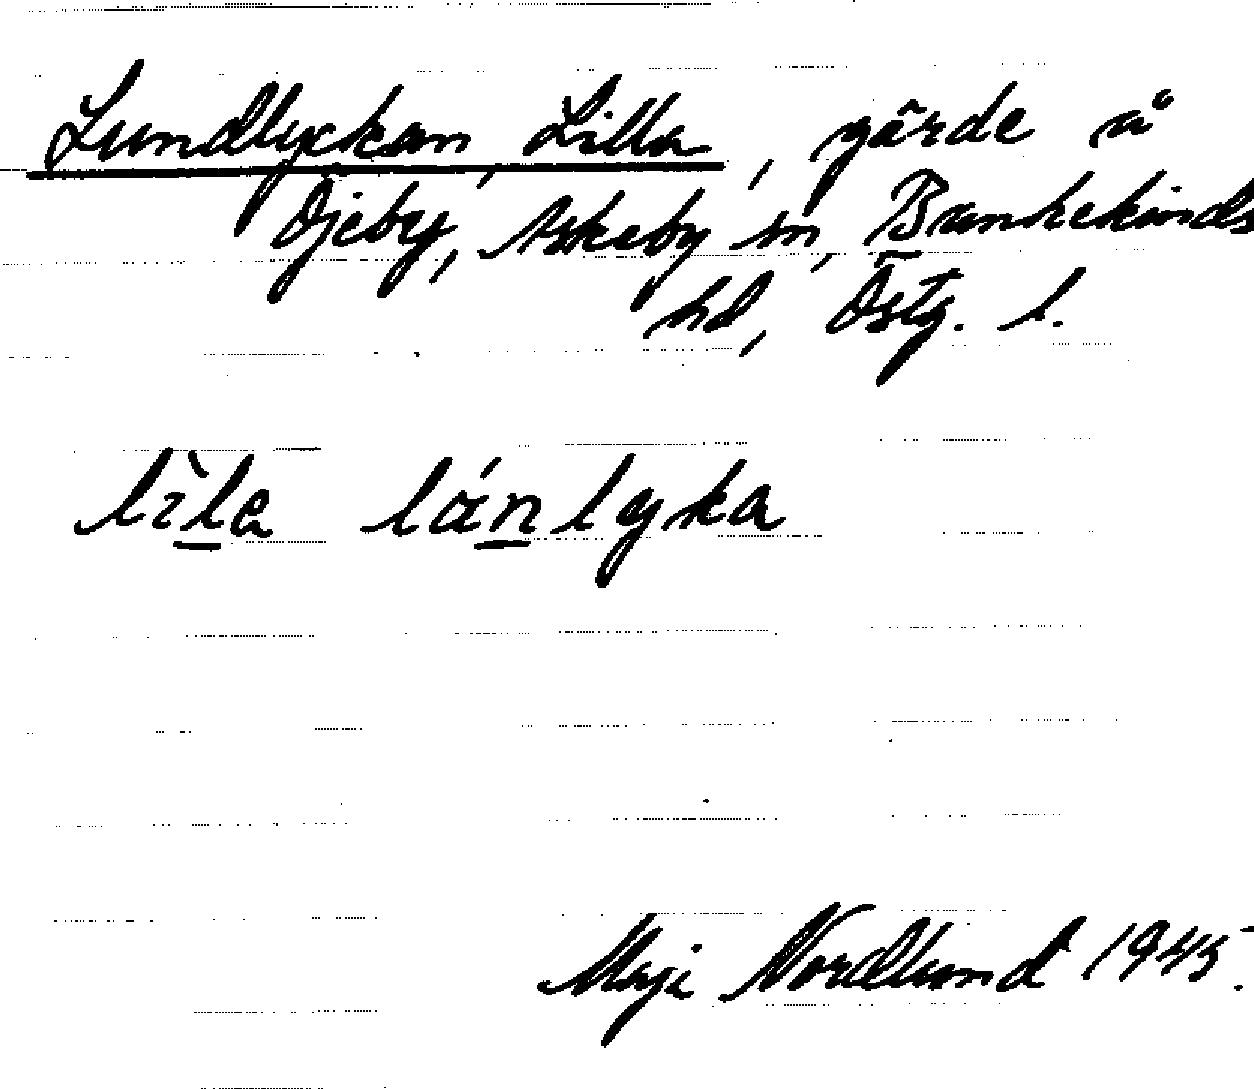 Lundlyckan, Lilla, gärde å
Öjeby, Askeby sn, Bankekinds
hd, Östg. l.
lìla lánlyka
Maji Nordlund 1945.